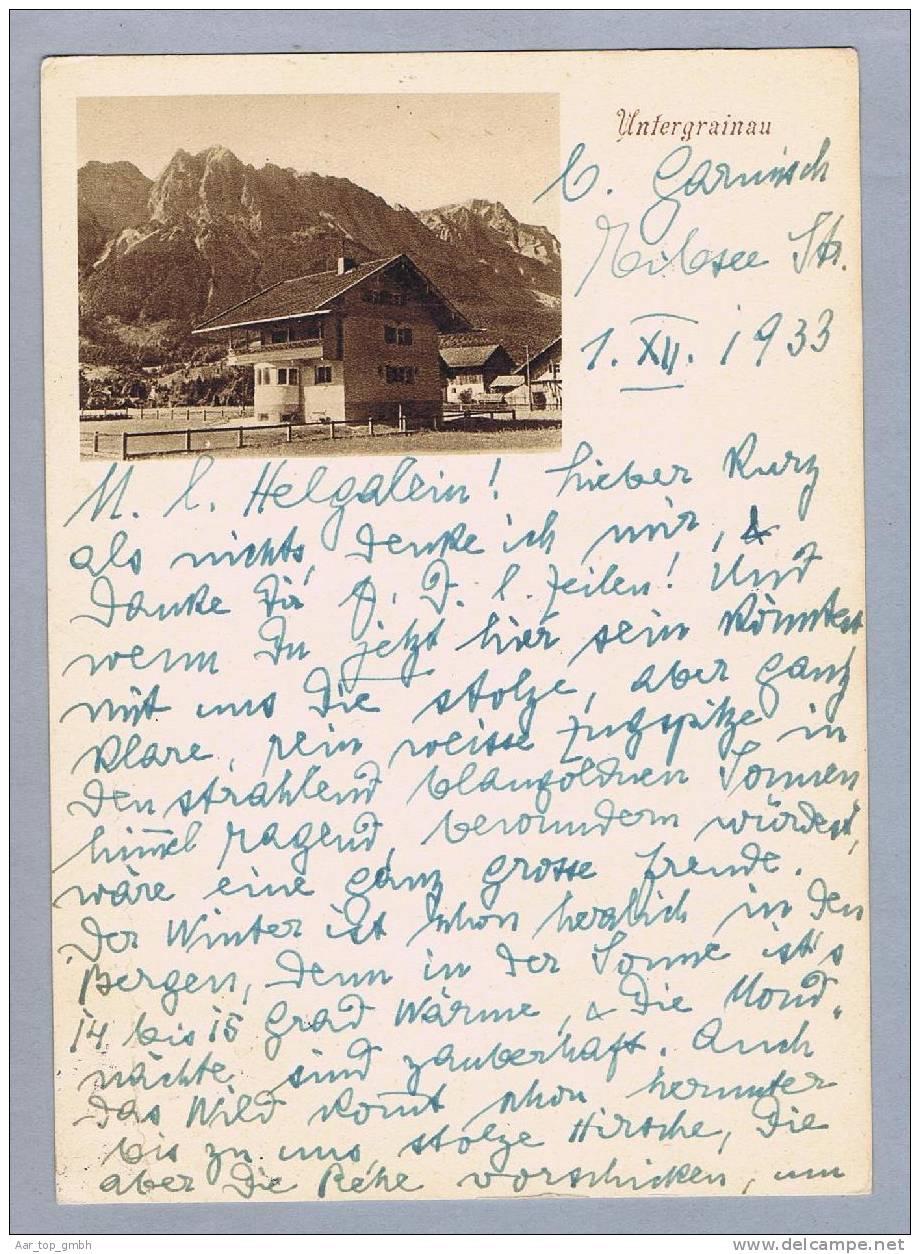 Untergrainau
b. Garmisch
Eibsee Str.
1. XII. 1933
M. l. Helgalein! Lieber kurz
als nichts, denke ich mir, &
danke Dir f. D. l. Zeilen! Und
wenn Du jetzt hier sein könntest
mit uns die stolze, aber ganz
klare, rein weisse Zugspitze in
den strahlend blaugoldnen Sonnen
him̅el ragend, bewundern würdest,
wäre eine ganz grosse Freude.
Der Winter ist schon herrlich in den
Bergen, denn in der Sonne ist's
14 bis 15 Grad Wärme, & die Mond-
nächte sind zauberhaft. Auch
das Wild kom̅t schon herunter
bis zu uns, stolze Hirsche, die
aber die Rehe vorschicken, um
Aar_top_gmbh
www.delcampe.net